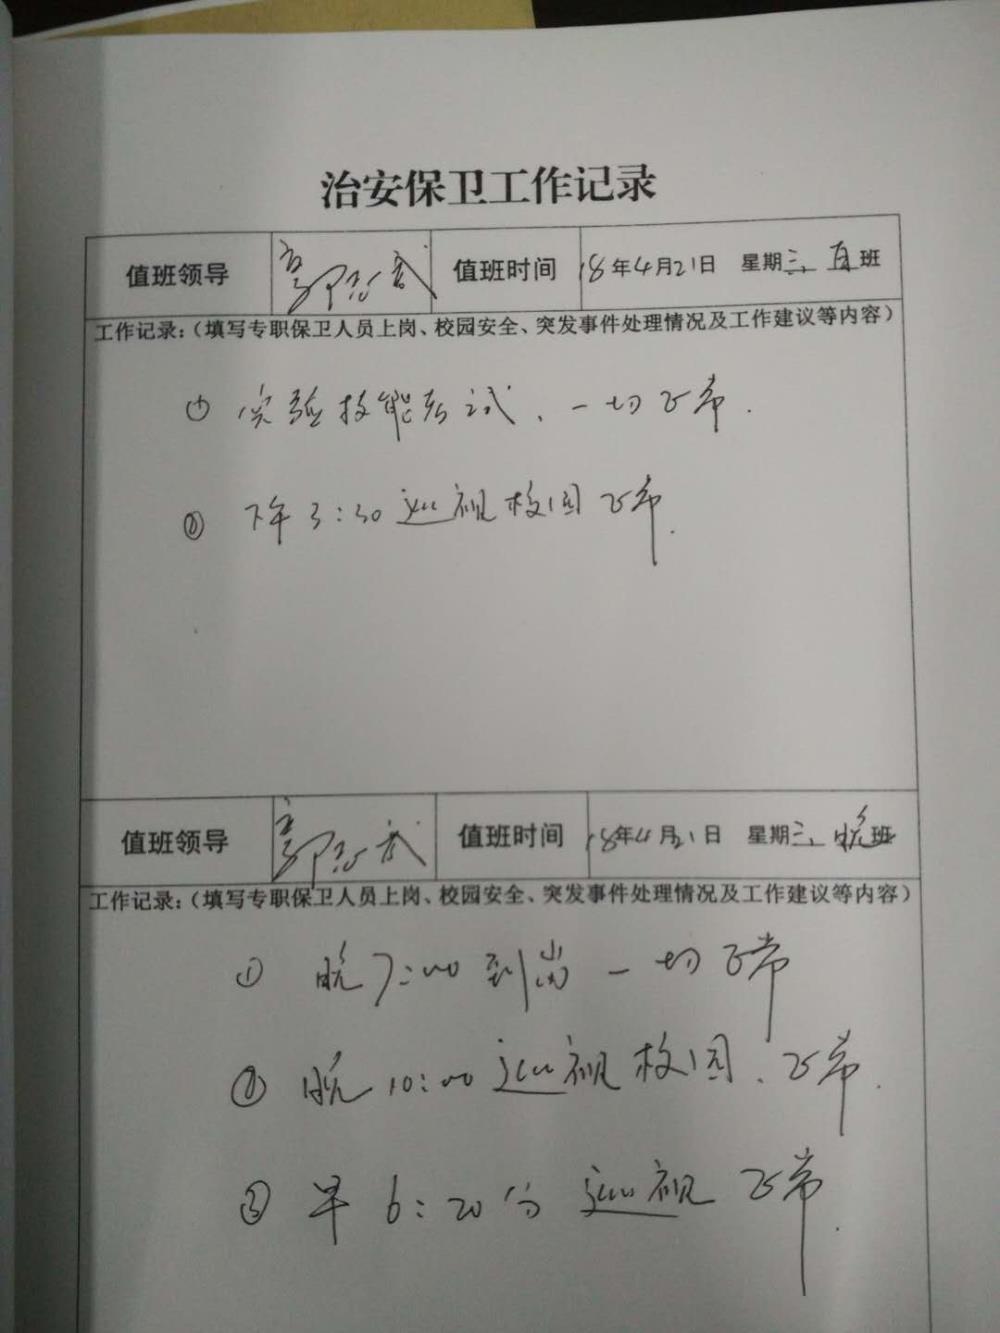 治安保卫工作记录
值班领导 郭志武 值班时间 18年4月21日 星期三 白班
工作记录:（填写专职保卫人员上岗、校园安全、突发事件处理情况及工作建议等内容）
① 实验技能考试、一切正常.
② 下午3:30巡视校园正常.
值班领导 郭志武 值班时间 18年4月21日 星期三 晚班
工作记录:（填写专职保卫人员上岗、校园安全、突发事件处理情况及工作建议等内容）
① 晚7:00到岗一切正常
② 晚10:00巡视校园、正常.
③ 早6:20分巡视正常.